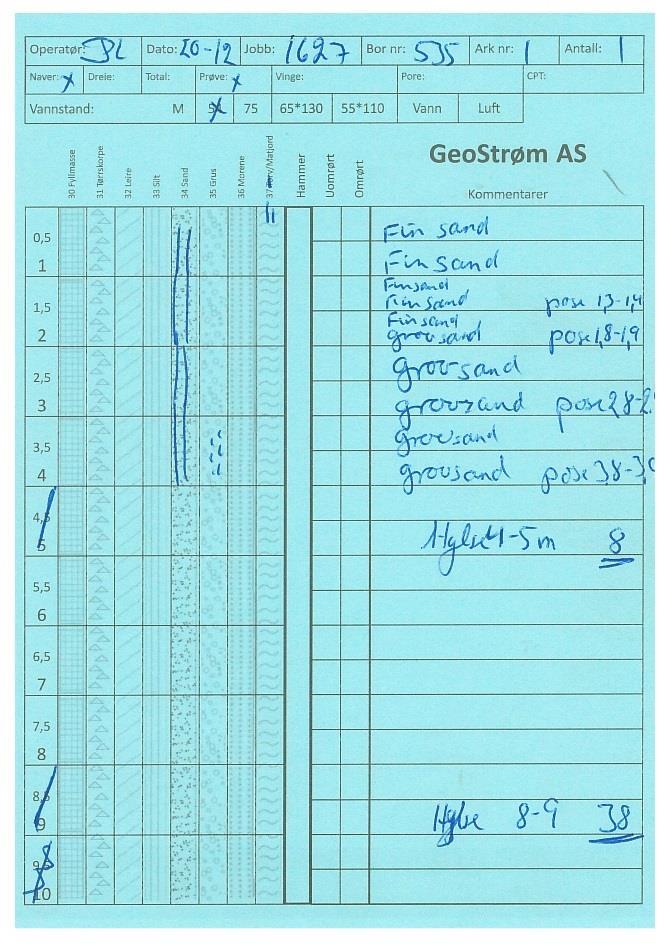 Operatør: BL Dato: 20-12 Jobb: 1627 Bor nr: 535 Ark nr: 1 Antall: 1
Naver: x Dreie: Total: Prøve: x Vinge: Pore: CPT:
Vannstand: M 54 75 65*130 55*110 Vann Luft
30 Fyllmasse
31 Tørrskorpe
32 Leire
33 Silt
34 Sand
35 Grus
36 Morene
37 Torv/Matjord
Hammer
Uomrørt
Omrørt
GeoStrøm AS
Kommentarer
0,5 Fin sand
1 Fin sand
Finsand
1,5 Finsand pose 1,3-1,4
Finsand
2 grovsand pose 1,8-1,9
2,5 Grovsand
3 grovsand pose 2,8-2,
3,5 grovsand
4 grovsand pose 3,8-3,
4,5
5 Hylse 4-5 m 8
5,5
6
6,5
7
7,5
8
8,5
9 Hylse 8-9 38
9,5
10